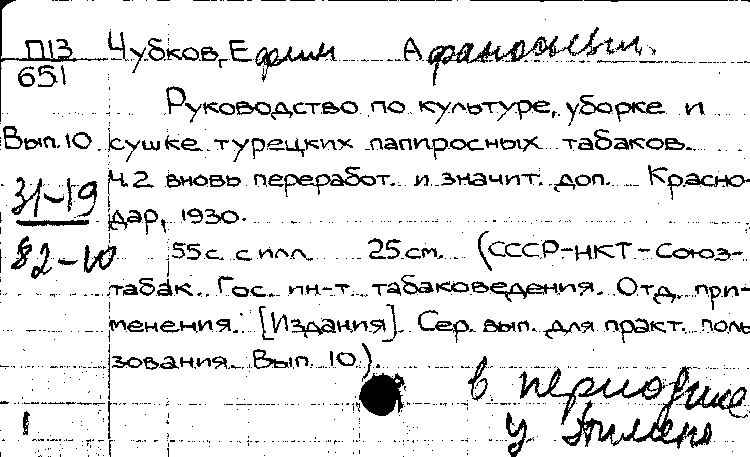 П13 Чубков, Ефим Афанасьевич.
651
Руководство по культуре, уборке и
Вып. 10 сушке турецких папиросных табаков.
Ч. 2 вновь переработ. и значит. доп. Красно-
31-19 дар, 1930.
82-10 55 с. с илл. 25 см. (СССР-НКТ-Союз-
табак. Гос. ин-т. табаковедения. Отд. при-
менения. [Издания]. Сер. вып. для практ. поль
зования. Вып. 10).
в периодике
1 у